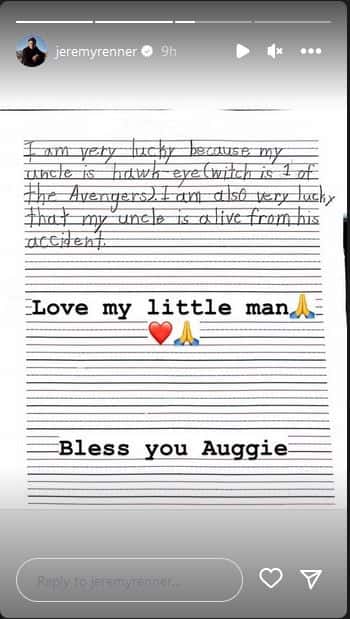 jeremyrenner 9h
I am very lucky because my
uncle is hawk-eye(witch is 1 of
the Avengers). I am also very lucky
that my uncle is alive from his
accident.
Love my little man🙏
❤️🙏
Bless you Auggie
Reply to jeremyrenner...